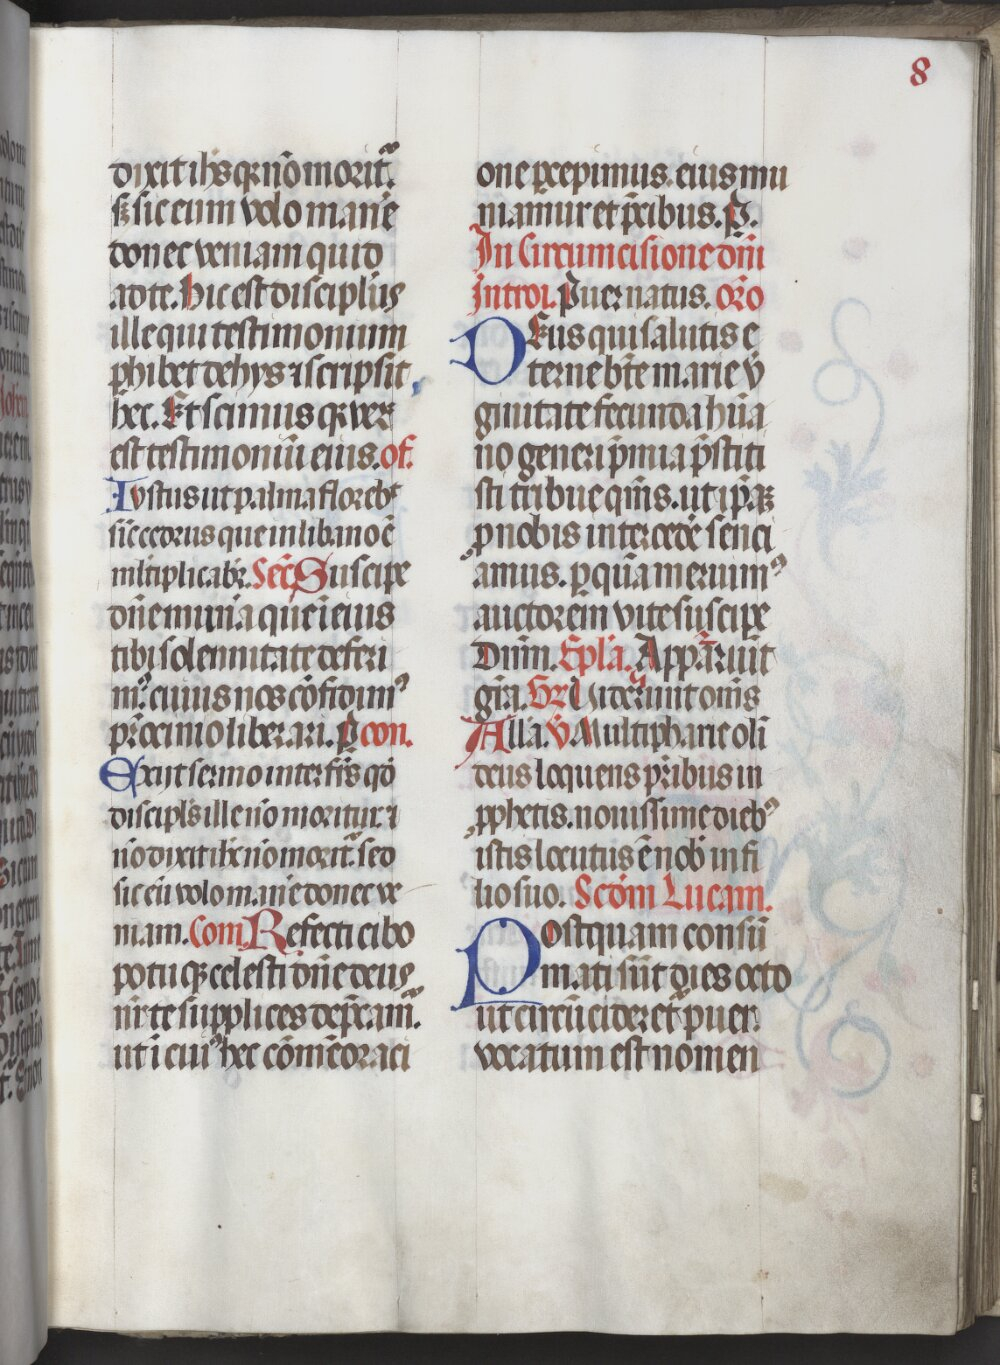 8
dixit ihs̄ qr nō morit᷑.
sꝫ sic eum volo mane
donec veniam quid
ad te. Hic est disciplus
ille qui testimonium
phibet de hys ⁊ scripsit
hec. Et scimus qr ver
est testimoniū eius. of.
Iustus ut palma florebt
sic̄ cedrus que in libano ē
mltiplicabr̄. Secr̄. Suscipe
dn̄e munīa que ī eius
tibi solennitate deferi
mꝰ cuius nos cōfidimꝰ
pr̄ocinio liberari. p̄ con.
Exiit sermo inter fr̄s qd̄
discipls̄ ille nō moritur. ⁊
nō dixit ihc̄ nō morit᷑. sed
sic eū volo mane donec ve
niam. Com̄. Refecti cibo
potu qꝫ celesti dn̄e deus
nr̄ te supplices dep̄cam᷑.
ut ī cuiꝰ hec cōmēoraci
one ꝑcepimus. eius mu
niamur et p̄cibus. P.
In Circumcisione dn̄i
Introi. Puer natus. oro
Deus qui salutis e
terne bt̄e marie v̄
ginitate fecunda hūa
no generi p̄mia p̄stiti
sti tribue qm̄s. ut ip̄aꝫ
ꝓ nobis intercedē senci
amus. ꝑ quā meruimꝰ
auctorem vite suscipe
Dnm̄. Epl̄a. Apparuit
grā. Gr̄ Viderunt om̄s
Alla. v̄ Multipharie oli
deus loquens pr̄ibus in
ꝓphetis. nouissime diebꝰ
istis locutus ē nob̄ in fi
lio suo. Scdm̄ Lucam.
Postquam consū
mati sūt dies octo
ut circūcideret᷑ puer.
vocatum est nomen